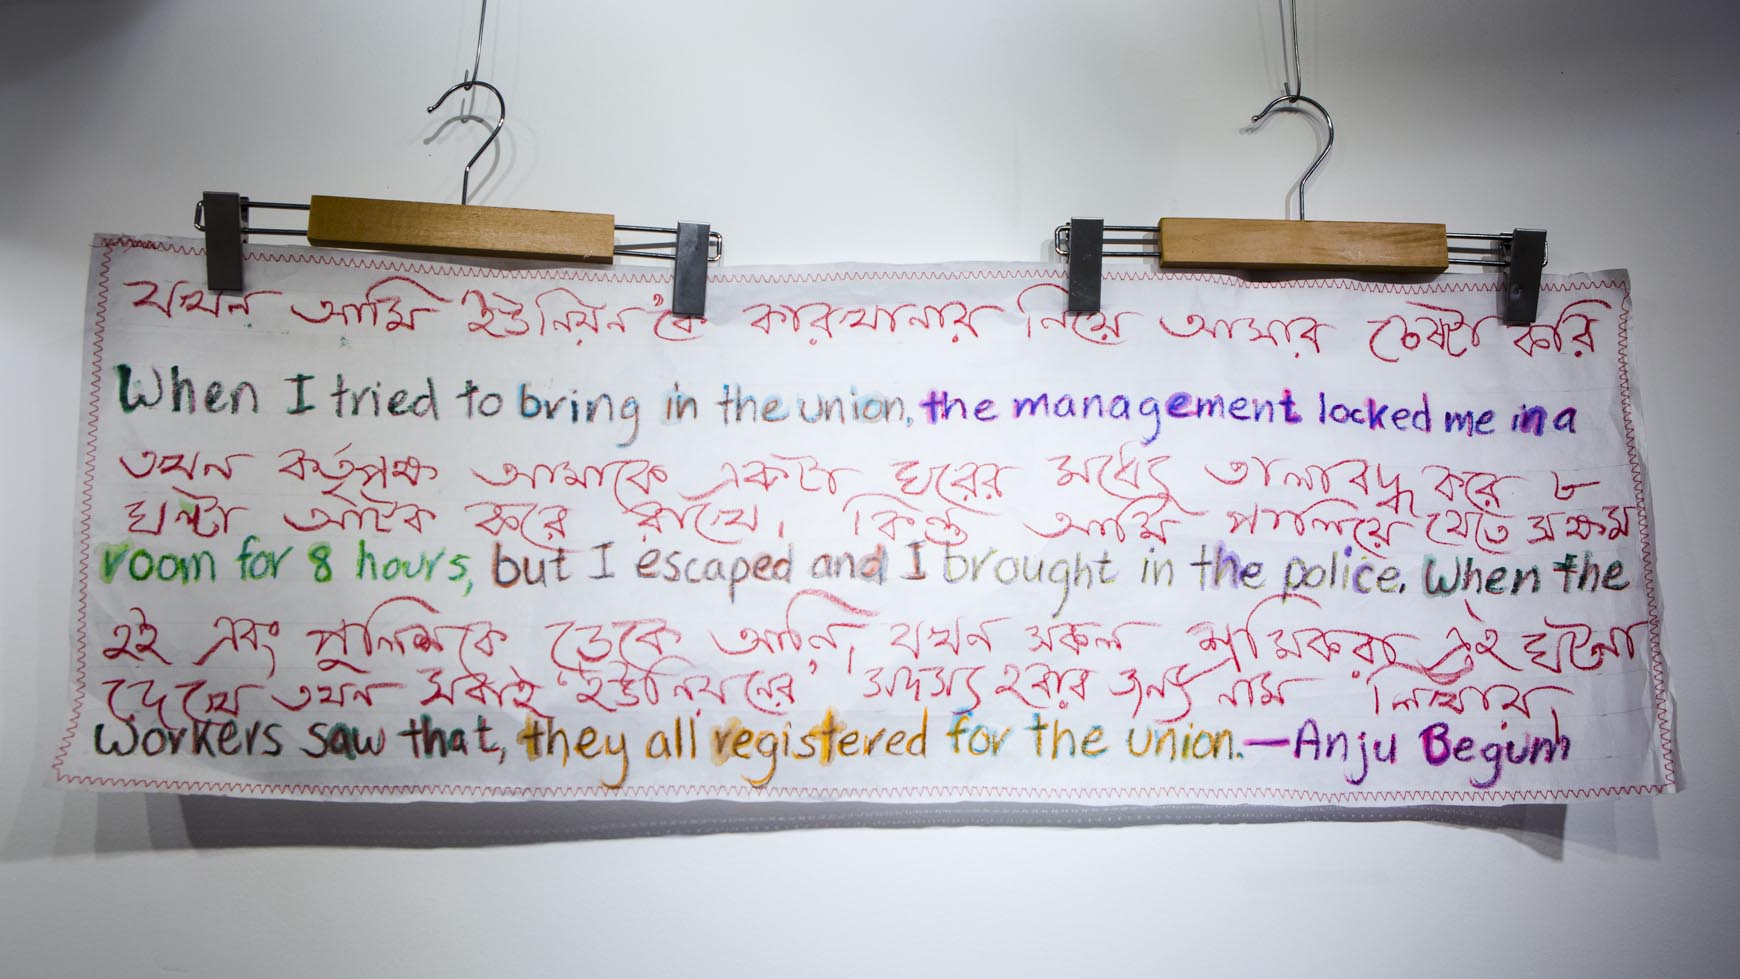 যখন আমি ইউনিয়ন কে কারখানায় নিয়ে আসার চেষ্টা করি
When I tried to bring in the union, the management locked me in a
তখন কর্তৃপক্ষ আমাকে একটা ঘরের মধ্যে তালাবদ্ধ করে ৮
ঘন্টা আটক করে রাখে। কিন্তু আমি পালিয়ে যেতে সক্ষম
room for 8 hours, but I escaped and I brought in the police. When the
হই এবং পুলিশকে ডেকে আনি, যখন সকল শ্রমিকরা এই ঘটনা
দেখে তখন সবাই ইউনিয়নের সদস্য হবার জন্য নাম লিখায়।
workers saw that, they all registered for the union.—Anju Begum